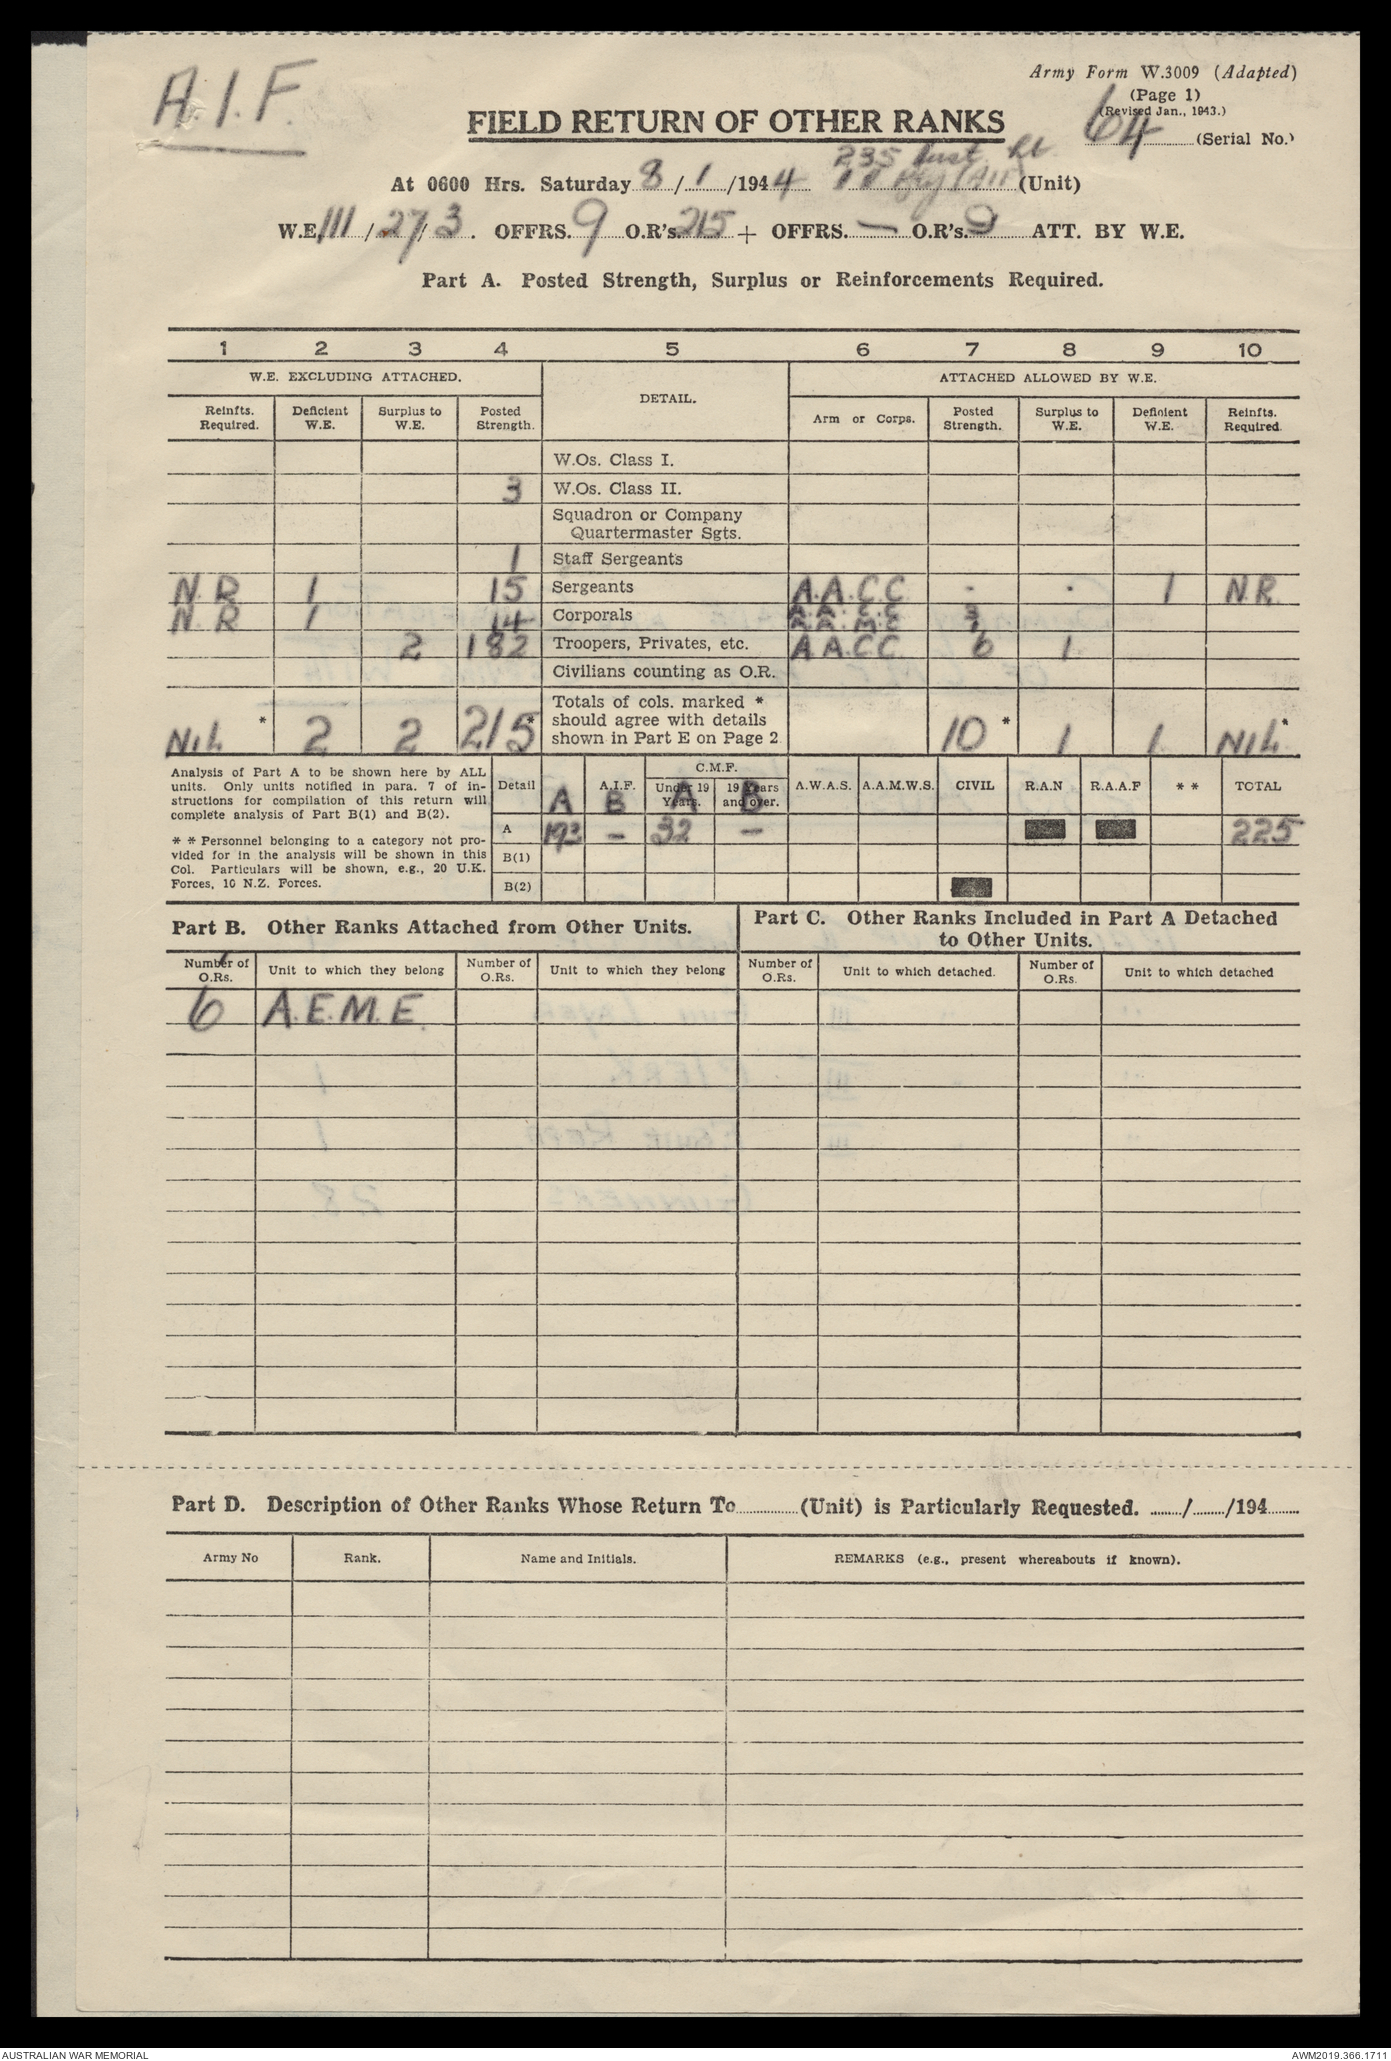 A.I.F.
Army Form W.3009 (Adapted)
(Page 1)
(Revised Jan., 1943.)
FIELD RETURN OF OTHER RANKS
64 (Serial No.)
235
At 0600 Hrs. Saturday 8/1/1944 (Unit)
W.E. 111/27/3. OFFRS. 9 O.R's. 215 + OFFRS. — O.R's. 9 ATT. BY W.E.
Part A. Posted Strength, Surplus or Reinforcements Required.
1 2 3 4 5 6 7 8 9 10
W.E. EXCLUDING ATTACHED. DETAIL. ATTACHED ALLOWED BY W.E.
Reinfts. Required. Deficient W.E. Surplus to W.E. Posted Strength. Arm or Corps. Posted Strength. Surplus to W.E. Deficient W.E. Reinfts. Required.
W.Os. Class I.
3 W.Os. Class II.
Squadron or Company
Quartermaster Sgts.
1 Staff Sergeants
N.R 1 15 Sergeants A.A.C.C - . 1 N.R.
N.R 1 14 Corporals A.A.C.C 3
A.E.M.E 1
2 182 Troopers, Privates, etc. A.A.C.C. 6 1
Civilians counting as O.R.
Totals of cols. marked *
should agree with details
shown in Part E on Page 2
NIL * 2 2 215 * 10 * 1 1 NIL *
Analysis of Part A to be shown here by ALL
units. Only units notified in para. 7 of in-
structions for compilation of this return will
complete analysis of Part B(1) and B(2).
* * Personnel belonging to a category not pro-
vided for in the analysis will be shown in this
Col. Particulars will be shown, e.g., 20 U.K.
Forces, 10 N.Z. Forces.
C.M.F.
Detail A.I.F. Under 19 Years. 19 Years and over. A.W.A.S. A.A.M.W.S. CIVIL R.A.N R.A.A.F * * TOTAL
A B A B
A 193 — 32 — 225
B(1)
B(2)
Part B. Other Ranks Attached from Other Units.
Part C. Other Ranks Included in Part A Detached
to Other Units.
Number of O.Rs. Unit to which they belong Number of O.Rs. Unit to which they belong Number of O.Rs. Unit to which detached. Number of O.Rs. Unit to which detached
6 A.E.M.E.
Part D. Description of Other Ranks Whose Return To............(Unit) is Particularly Requested. ....../....../194......
Army No Rank. Name and Initials. REMARKS (e.g., present whereabouts if known).
AUSTRALIAN WAR MEMORIAL AWM2019.366.1711